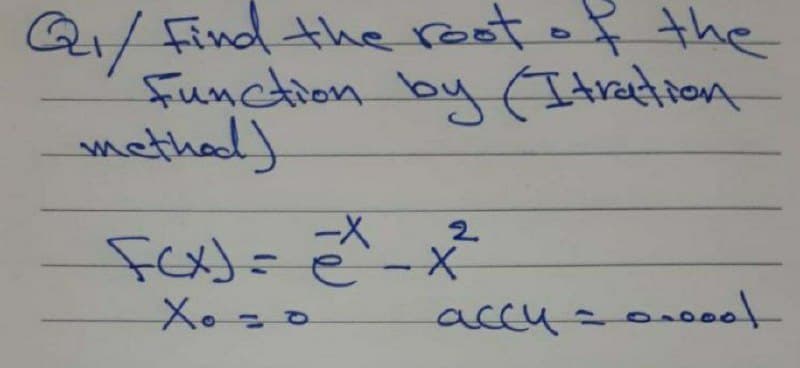 Q1/ Find the root of the
Function by (Itration
method)
F(x) = e^-x - x^2
X0 = 0 accu = 0.0001